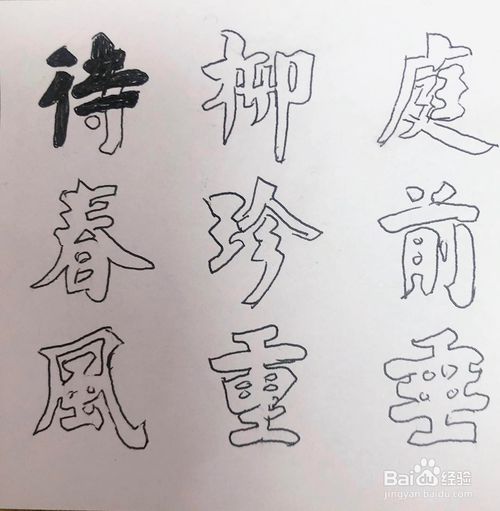 庭前垂
柳珍重
待春風
Bai du 经验
jingyan.baidu.com